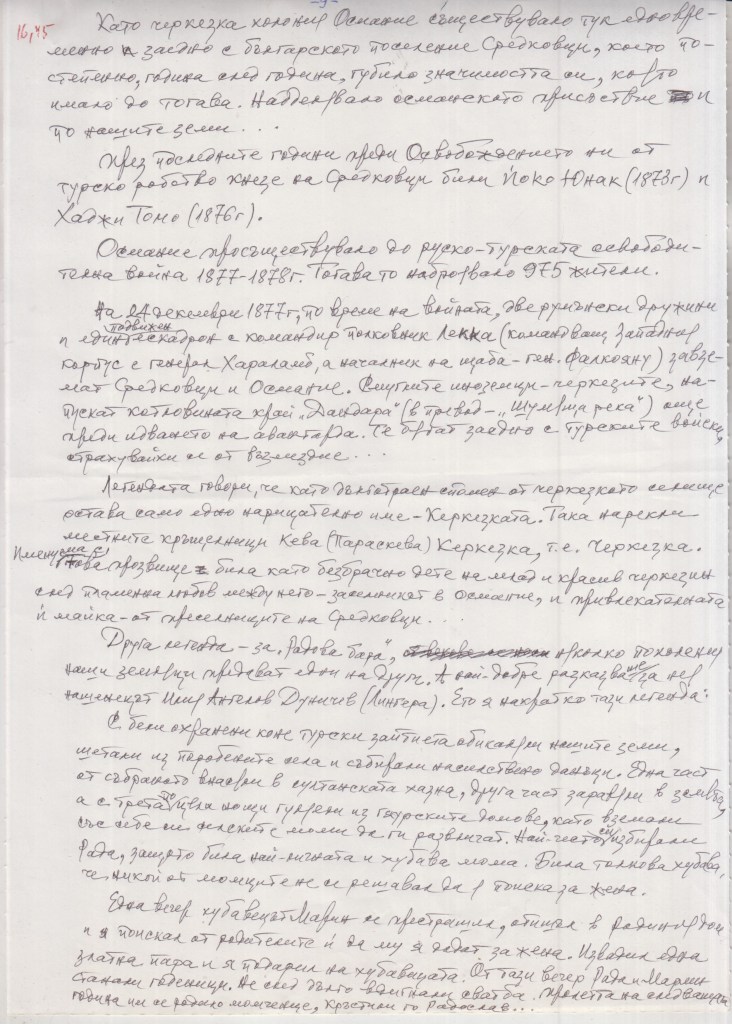 - 9 -
16,45
Като черкезка колония Османие съществувало тук едновре-
менно заедно с българското поселение Средковци, което по-
степенно, година след година, губило значимостта си, която
имало до тогава. Надделявало османското присъствие и
по нашите земи...
През последните години преди Освобождението ни от
турско робство кнезе на Средковци били Йоко Юнак (1873г) и
Хаджи Томо (1876г).
Османие просъществувало до руско-турската освободи-
телна война 1877-1878г. Тогава то наброявало 975 жители.
На 24 декември 1877г, по време на войната, две румънски дружини
и един подвижен ескадрон с командир полковник Лекка (командващ Западния
корпус с генерал Хараламб, а началник на щаба - ген. Фалкояну) завзе-
мат Средковци и Османие. Смутните иноземци - черкезите, на-
пускат котловината край "Дандара" (в превод - "Шумяща река") още
преди идването на авангарда. Те бягат заедно с турските войски,
страхувайки се от възмездие...
Легендата говори, че като дълготраен спомен от черкезкото селище
остава само едно нарицателно име - Керкезката. Така нарекли
местните кръщелници Кева (Параскева) Керкезка, т.е. Черкезка.
Именувана с това прозвище била като безбрачно дете на млад и красив черкезин
след пламенна любов между него - заселникът в Османие, и привлекателната
ѝ майка - от преселниците на Средковци...
Друга легенда - за "Радова бара", няколко поколения
наши земляци предават един на друг. А най-добре разказваше за нея
нашенецът Илия Ангелов Дуничев (Лингера). Ето я накратко тази легенда:
С бели охранени коне турски заптиета обикаляли нашите земи,
щетали из поробените села и събирали насилствено данъци. Една част
от събраното внасяли в султанската хазна, друга част заравяли в земята,
а с третата цели нощи гуляели из гяурските домове, като вземали
със себе си селските моми да ги развличат. Най-често си избирали
Рада, защото била най-личната и хубава мома. Била толкова хубава,
че никой от момците не се решавал да я поиска за жена.
Една вечер хубавецът Марин се престрашил, отишъл в Радиния дом
и я поискал от родителите ѝ да му я дадат за жена. Извадил една
златна пара и я подарил на хубавицата. От тази вечер Рада и Марин
станали годеници. Не след дълго вдигнали сватба. Пролетта на следващата
година им се родило момченце, кръстили го Радослав...